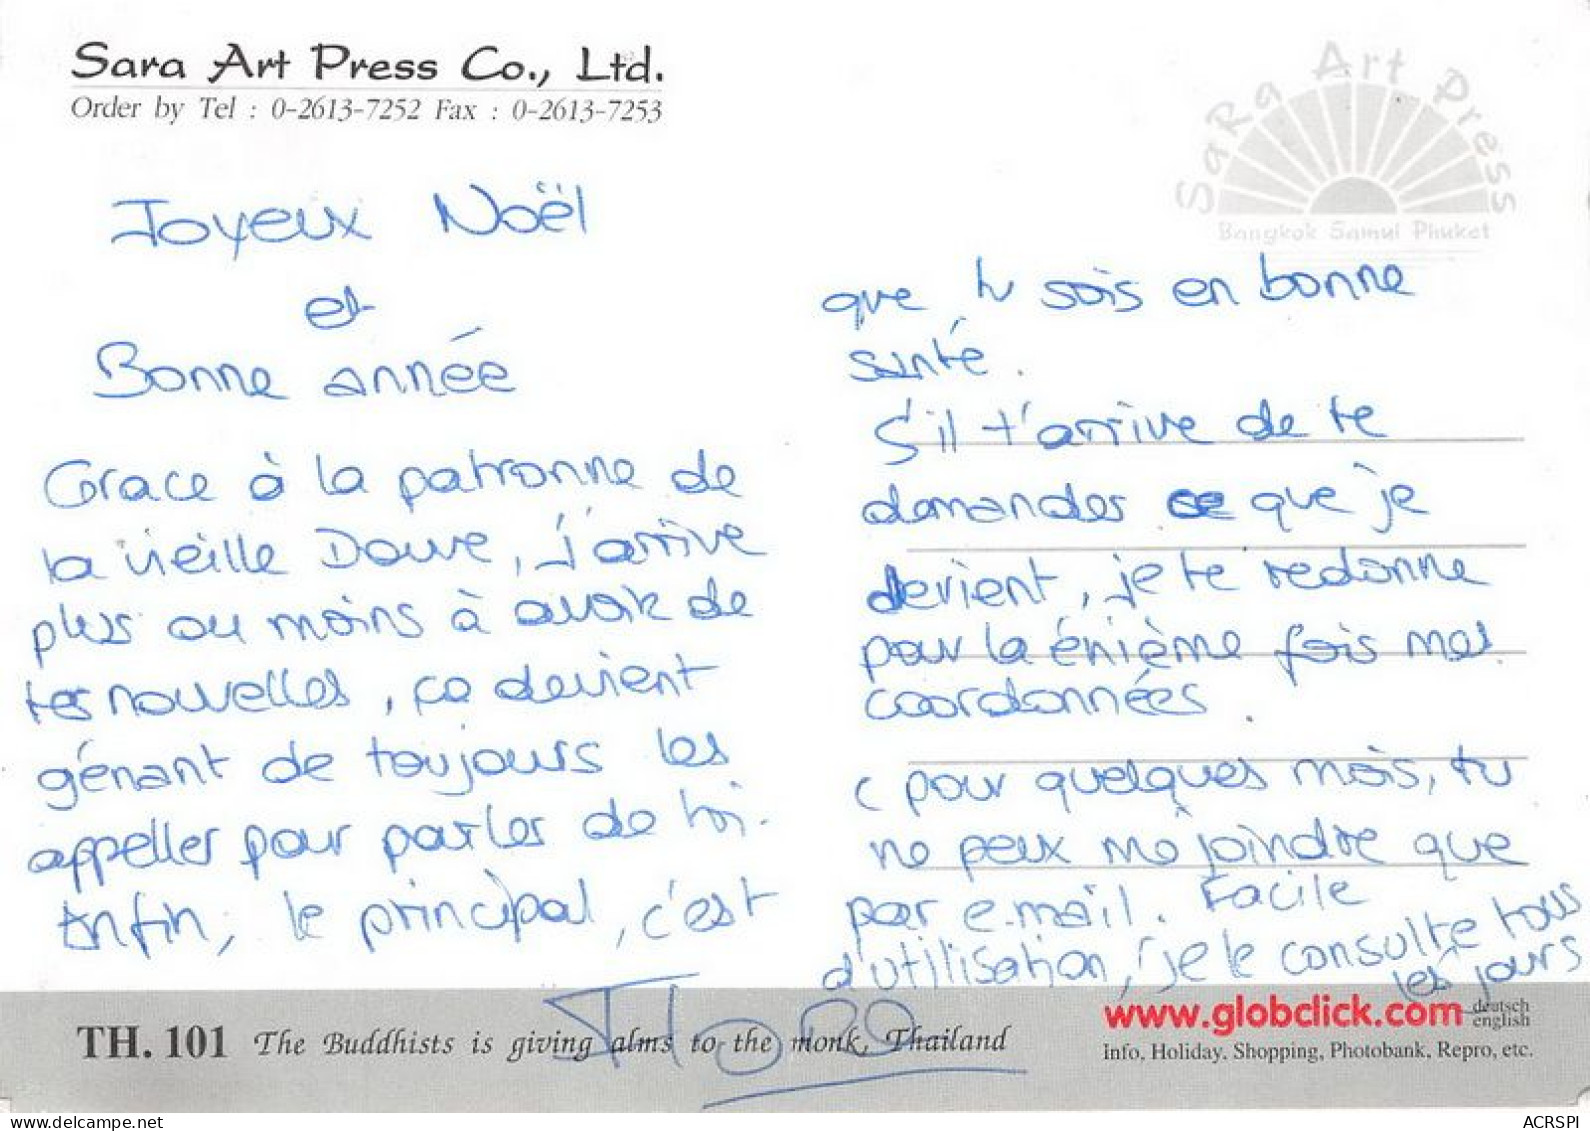 Sara Art Press Co., Ltd.
Order by Tel : 0-2613-7252 Fax : 0-2613-7253
SaRa Art Press
Bangkok Samui Phuket
Joyeux Noël
et
Bonne année
Grace à la patronne de
la vieille Douve, J'arrive
plus ou moins à avoir de
tes nouvelles, ça devient
gênant de toujours les
appeller pour parler de toi.
Enfin, le principal, c'est
que tu sois en bonne
santé.
S'il t'arrive de te
demander ce que je
devient, je te redonne
pour la énième fois mes
coordonnées.
( pour quelques mois, tu
ne peux me joindre que
par e.mail. Facile
d'utilisation, je le consulte tous
les jours
TH. 101 The Buddhists is giving alms to the monk, Thailand
www.globclick.com deutsch
english
Info, Holiday, Shopping, Photobank, Repro, etc.
ACRSPI